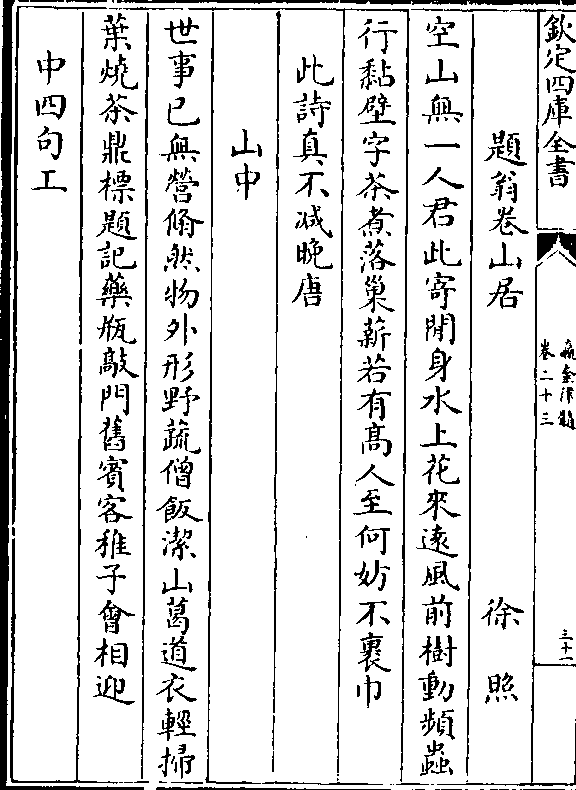 欽定四庫全書
瀛奎律髓
卷二十三
三十一
題翁卷山居 徐照
空山無一人君此寄閒身水上花來逺風前樹動頻蟲
行黏壁字茶煮落巢薪若有髙人至何妨不裹巾
此詩真不減晚唐
山中
世事已無營翛然物外形野蔬僧飯潔山葛道衣輕掃
葉燒茶鼎標題記藥瓶敲門舊賓客稚子會相迎
中四句工